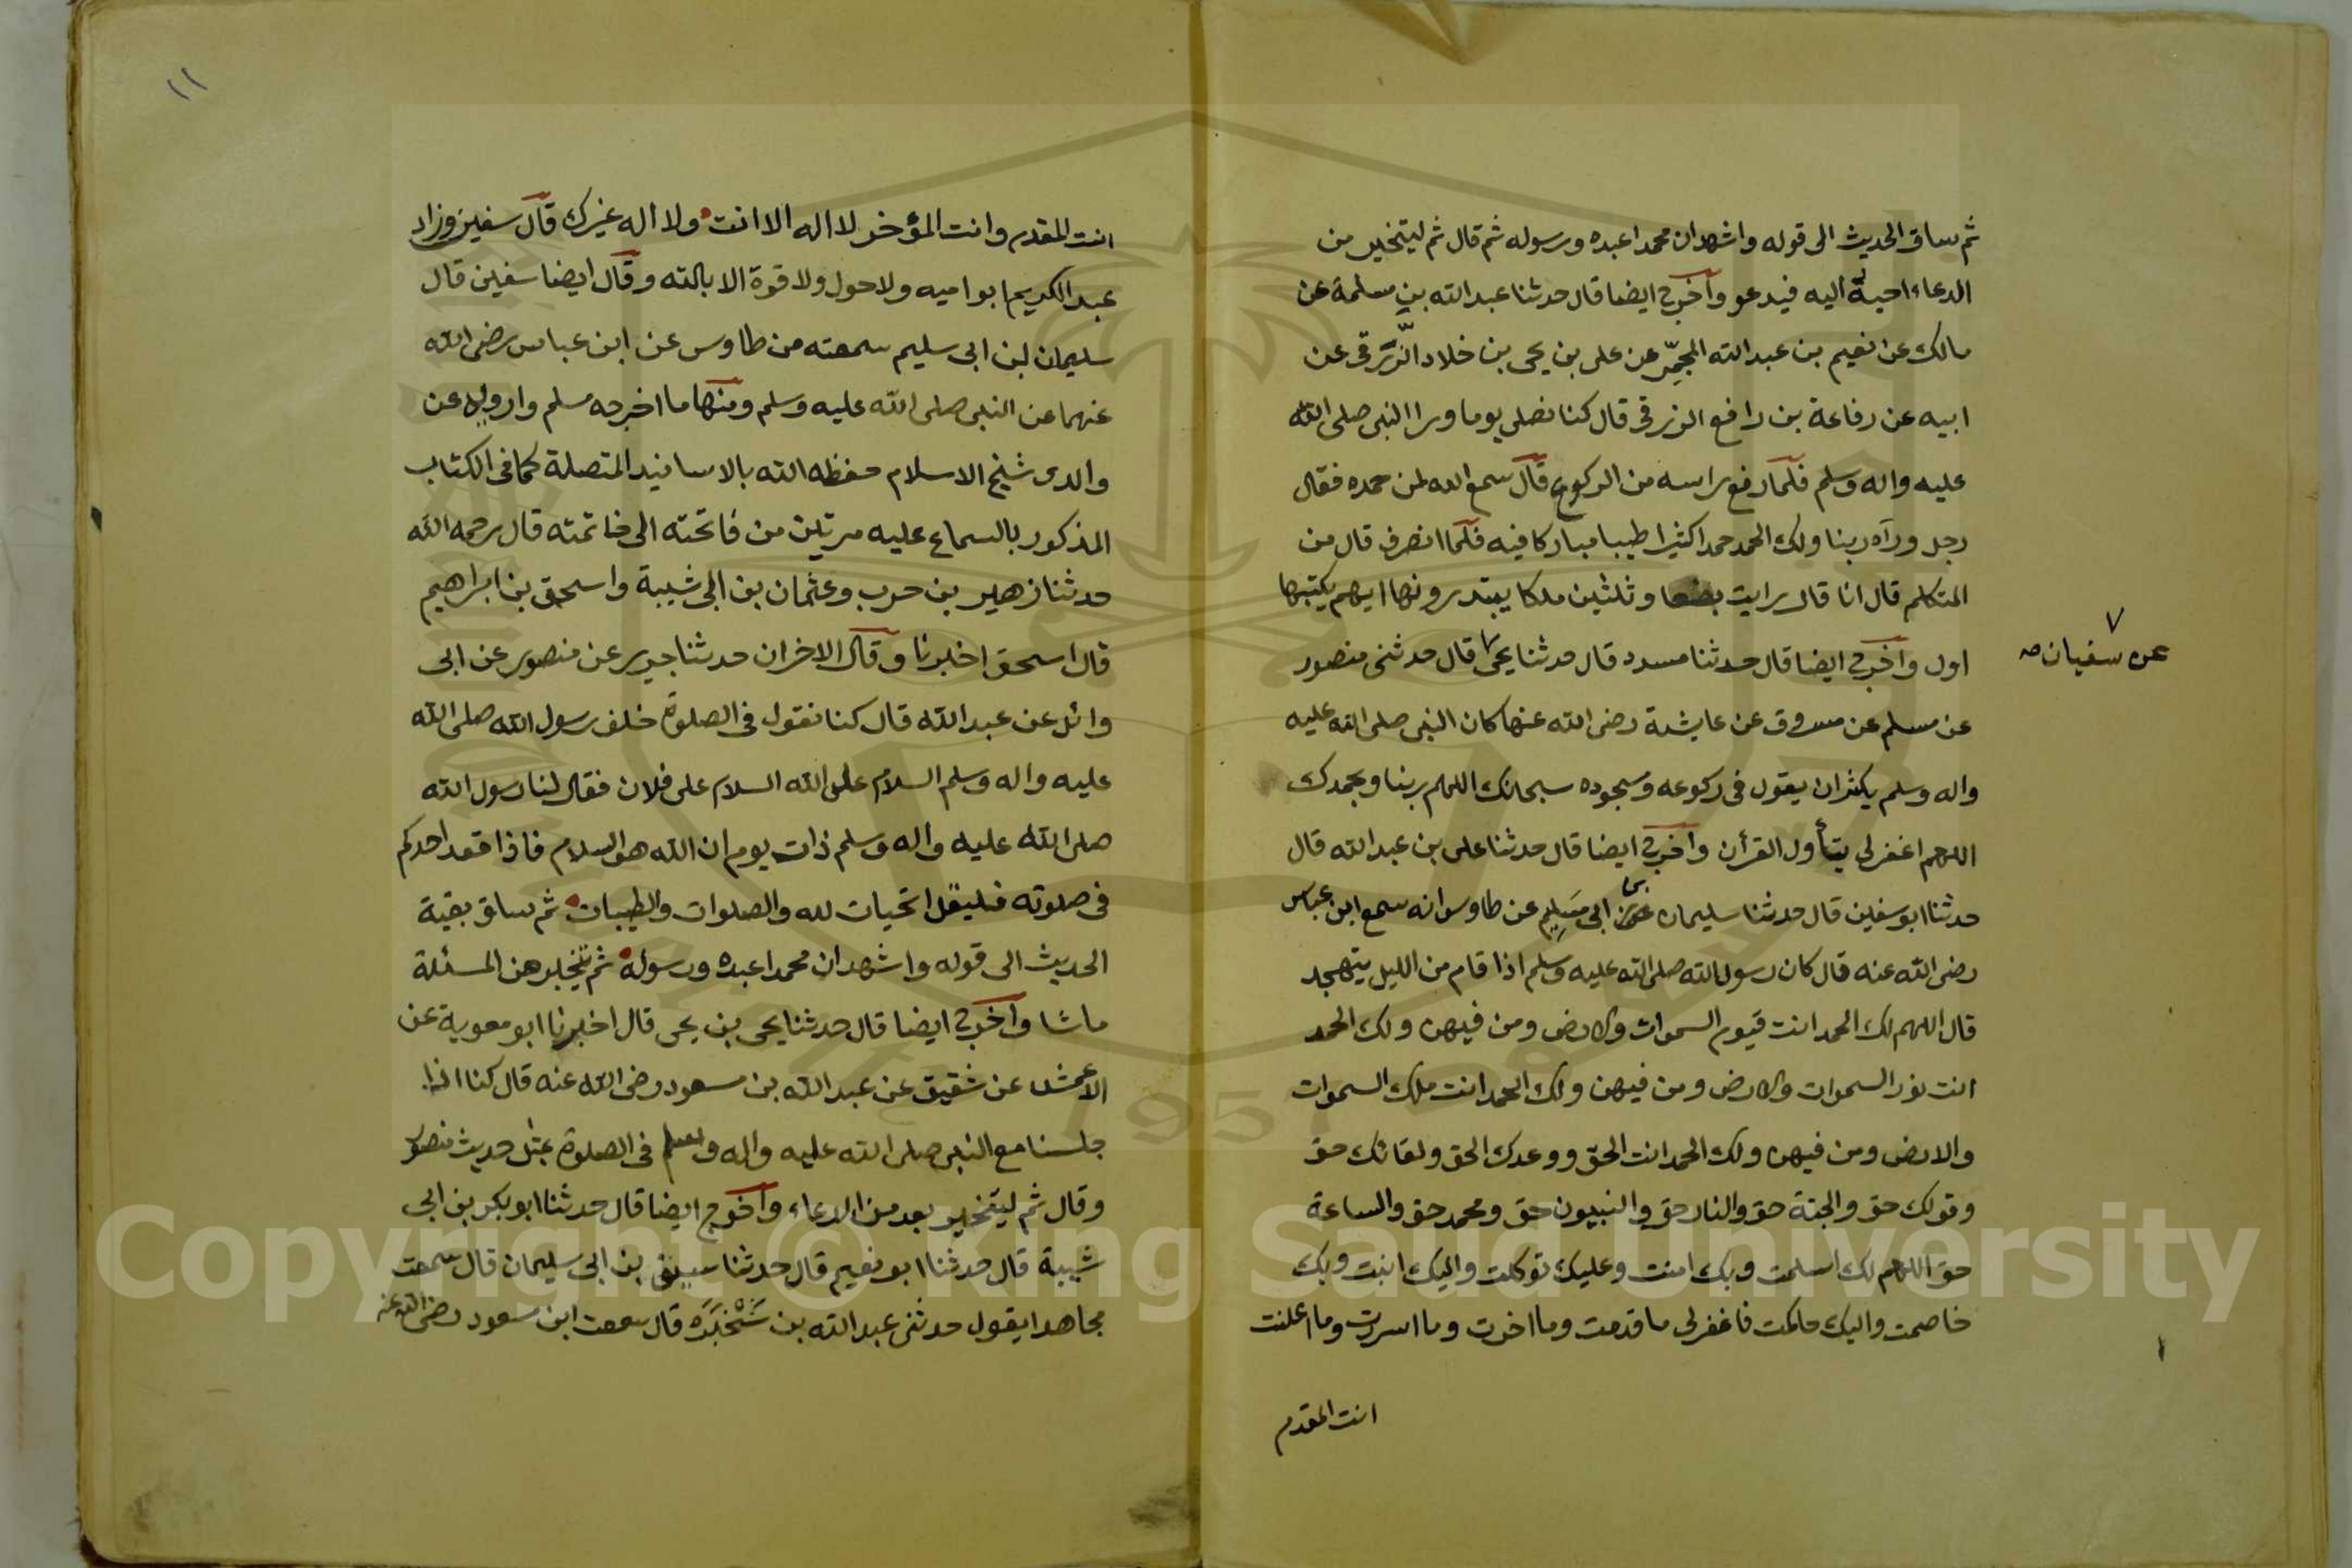 ثم ساق الحديث الى قوله واشهدان محمدا عبده ورسوله ثم قال ثم ليتخير من
الدعاء احبه اليه فيدعو وآخرج ايضا قال حدثنا عبد الله بن مسلمة عن
مالك عن نعيم بن عبد الله المجمّر عن على بن يحى بن خلاد الزّرَقى عن
ابيه عن رفاعة بن رافع الزرقى قال كنا نصلى يوما ورا النبى صلى الله
عليه واله وسلم فلما رفع راسه من الركوع قال سمع الله لمن حمده فقال
رجل ورآه ربنا ولك الحمد حمدا كثيرا طيبا مباركا فيه فلما انصرف قال من
المتكلم قال انا قال رايت بضعا وثلثين ملكا يبتدرونها ايهم يكتبها
اول وآخرج ايضا قال حدثنا مسدد قال حدثنا يحى قال حدثنى منصور
عن سفيان صه
عن مسلم عن مسروق عن عايشة رضى الله عنها كان النبى صلى الله عليه
واله وسلم يكثران يقول فى ركوعه وسجوده سبحانك اللهم ربنا وبحمدك
اللهم اغفرلى يتأول القرأن وآخرج ايضا قال حدثنا على بن عبد الله قال
حدثنا ابو سفين قال حدثنا سليمان بن ابى مسلم عن طاوس انه سمع ابن عباس
رضى الله عنه قال كان رسول الله صلى الله عليه وسلم اذا قام من الليل يتهجد
قال اللهم لك الحمد انت قيوم السموات والارض ومن فيهن ولك الحمد
انت نور السموات والارض ومن فيهن ولك الحمد انت ملك السموات
والارض ومن فيهن ولك الحمد انت الحق ووعدك الحق ولقائك حق
وقولك حق والجنة حق والنار حق والنبيون حق ومحمد حق والساعة
حق اللهم لك اسلمت وبك امنت وعليك توكلت واليك انبت وبك
خاصمت واليك حاكمت فاغفرلى ما قدمت وما اخرت وما اسررت وما اعلنت
انت المقدم
١١
انت المقدم وانت المؤخر لا اله الا انت ولا اله غيرك قال سفين وزاد
عبد الكريم ابو اميه ولاحول ولا قوة الا بالله وقال ايضا سفين قال
سليمان بن ابى سليم سمعته من طاوس عن ابن عباس رضى الله
عنهما عن النبى صلى الله عليه وسلم ومنها ما اخرجه مسلم وارويه عن
والدى شيخ الاسلام حفظه الله بالاسانيد المتصلة كما فى الكتاب
المذكور بالسماع عليه مرتين من فاتحته الى خاتمته قال رحمه الله
حدثنا زهير بن حرب وعثمان بن ابى شيبة واسحق بن ابراهيم
قال اسحق اخبرنا وقال الاخران حدثنا جرير عن منصور عن ابى
وائل عن عبد الله قال كنا نقول فى الصلوة خلف رسول الله صلى الله
عليه واله وسلم السلام على الله السلام على فلان فقال لنا رسول الله
صلى الله عليه واله وسلم ذات يوم ان الله هو السلام فاذا قعد احدكم
فى صلوته فليقل التحيات لله والصلوات والطيبات ثم ساق بقية
الحديث الى قوله واشهد ان محمدا عبده ورسوله ثم يتخير من المسئلة
ماشا وآخرج ايضا قال حدثنا يحى بن يحى قال اخبرنا ابو معوية عن
الاعمش عن شقيق عن عبد الله بن مسعود رضى الله عنه قال كنا اذا
جلسنا مع النبى صلى الله عليه واله وسلم فى الصلوة بمثل حديث منصور
وقال ثم ليتخير بعد من الدعاء وآخرج ايضا قال حدثنا ابو بكر بن ابى
شيبة قال حدثنا ابو نعيم قال حدثنا سيف بن ابى سليمان قال سمعت
مجاهدا يقول حدثنى عبد الله بن سَخْبَرَه قال سمعت ابن مسعود رضى الله عنه
Copyright © King Saud University
1957